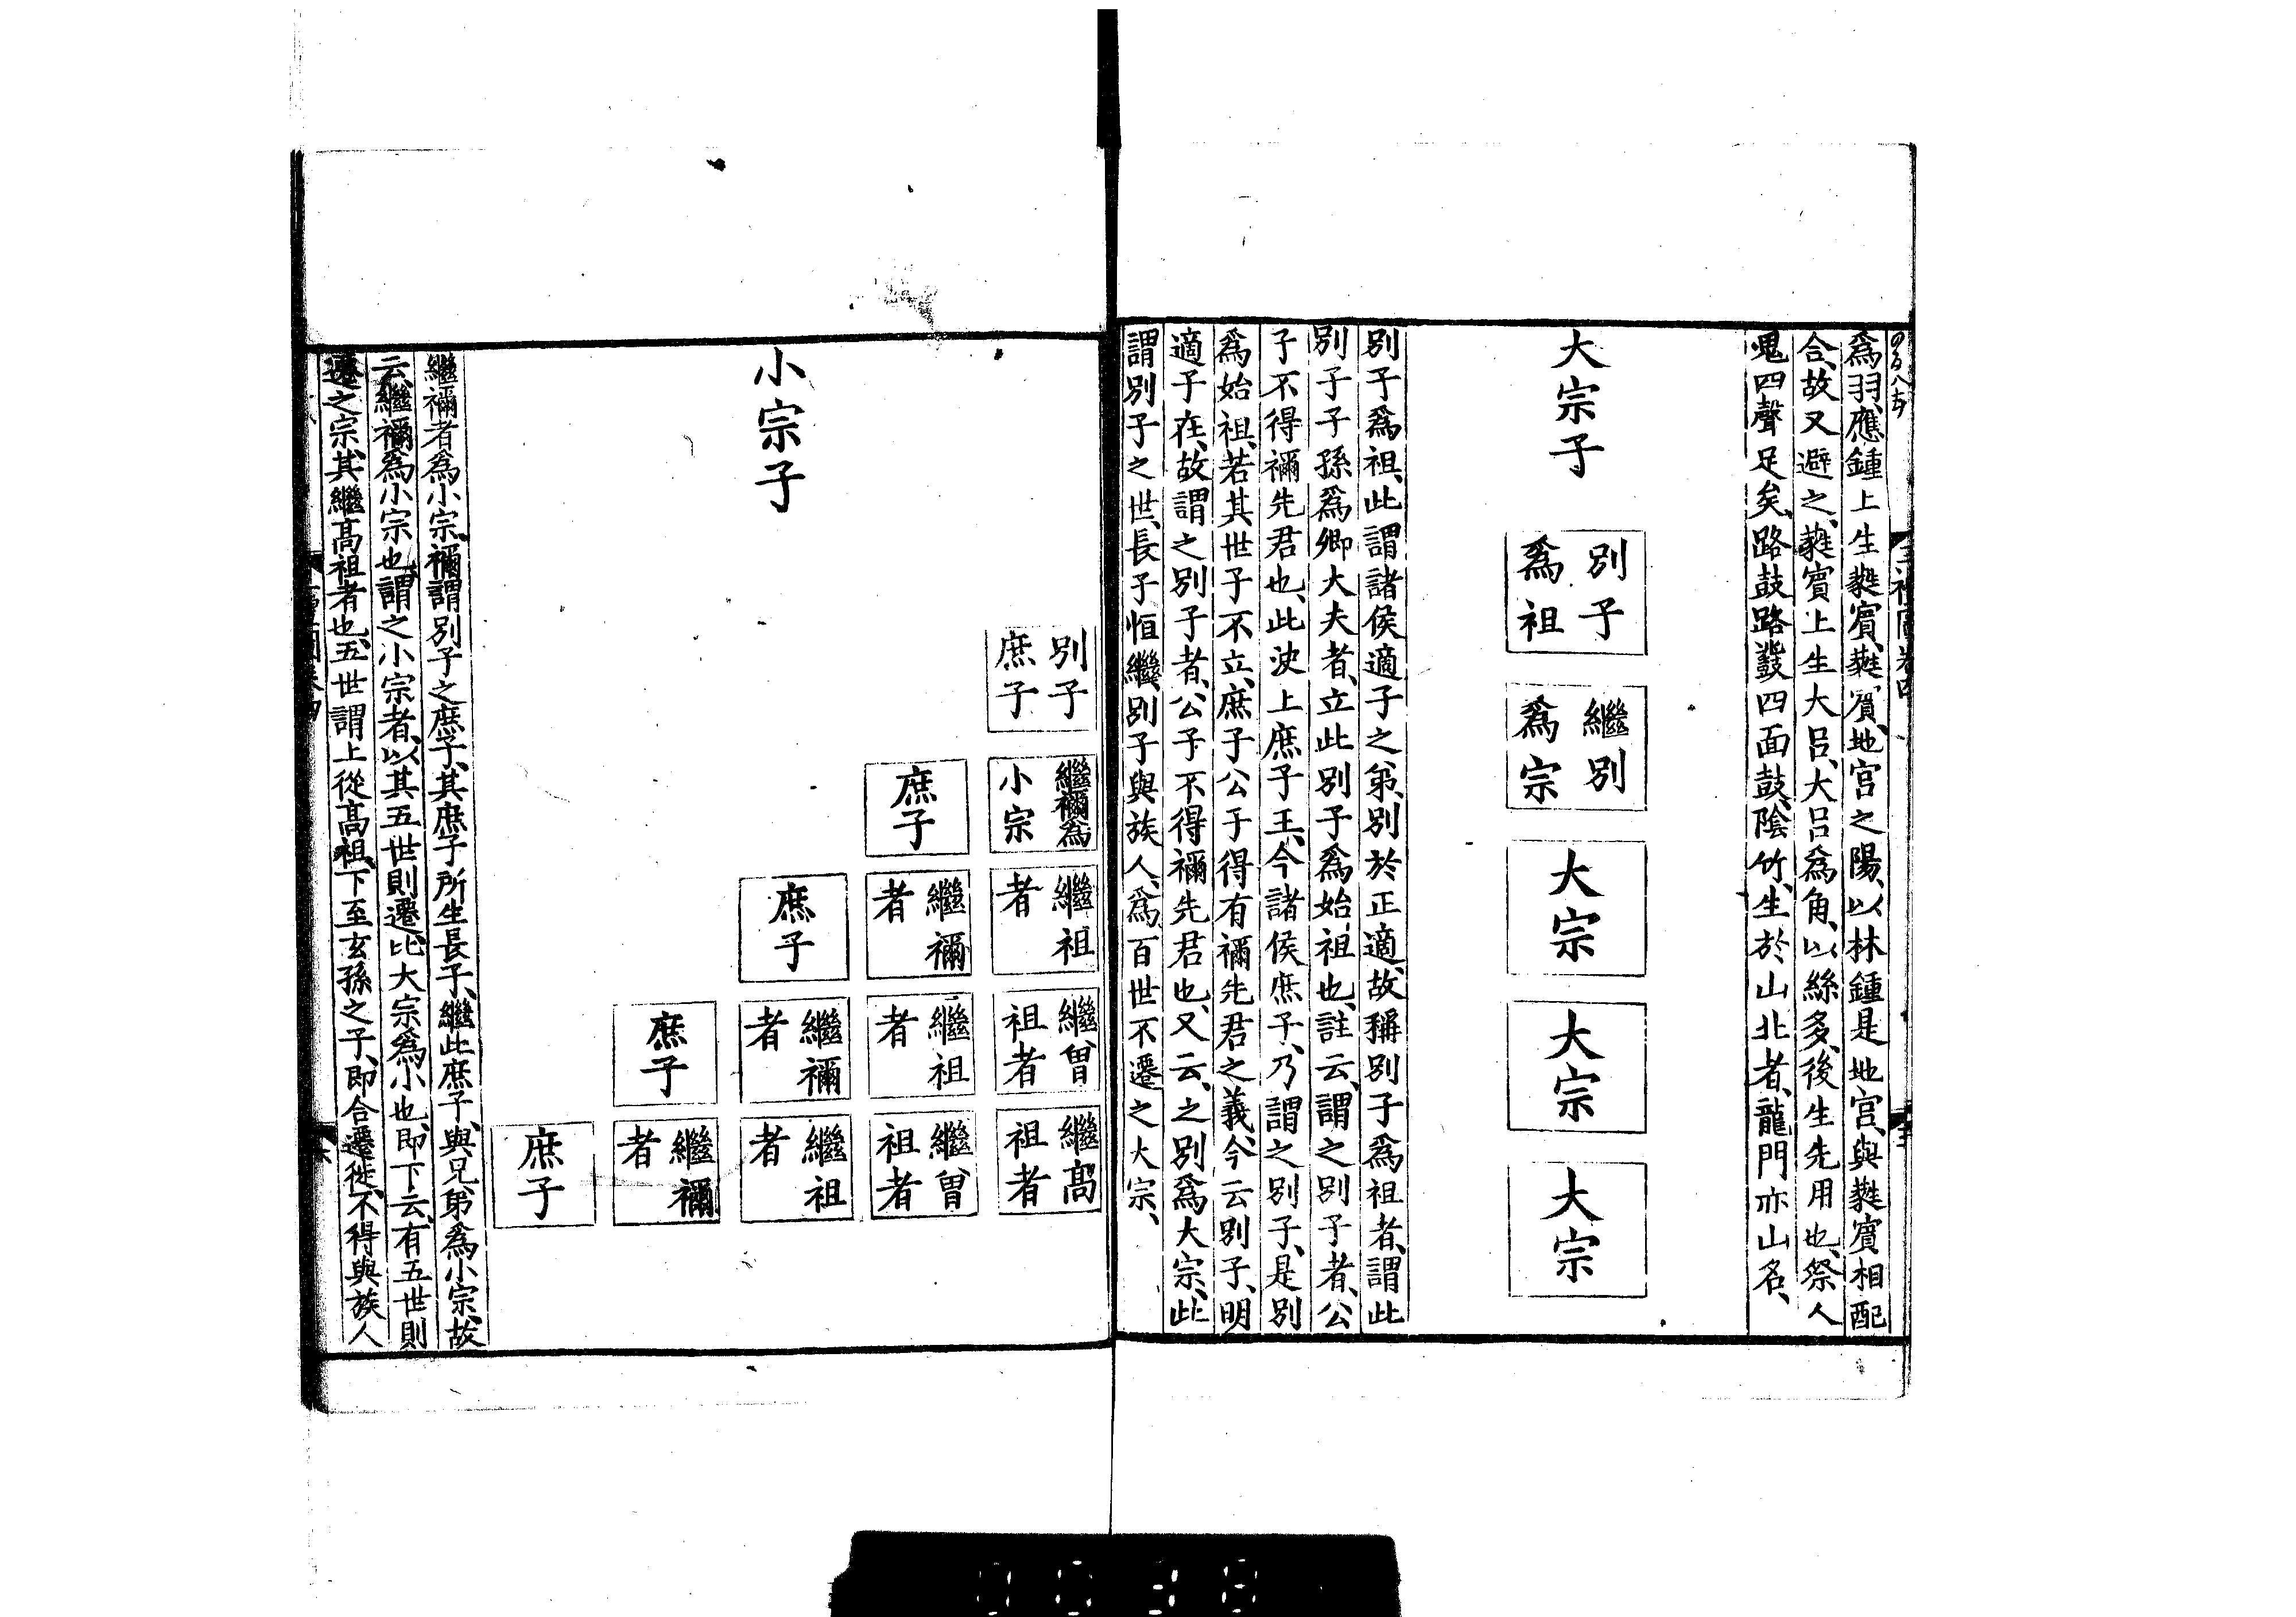 爲羽、應鍾上生蕤賓、蕤賓、地宮之陽、以林鍾是地宮、與蕤賓相配
合、故又避之、蕤賓上生大呂、大呂爲角、以絲多、後生先用也、祭人
鬼四聲足矣、路鼓路鼗四面鼓、陰竹、生於山北者、龍門亦山名、
大宗子
別子
爲祖
繼別
爲宗
大宗
大宗
大宗
別子爲祖、此謂諸侯適子之弟、別於正適、故稱別子爲祖者、謂此
別子子孫爲卿大夫者、立此別子爲始祖也、註云、謂之別子者、公
子不得禰先君也、此決上庶子王、今諸侯庶子、乃謂之別子、是別
爲始祖、若其世子不立、庶子公子得有禰先君之義、今云別子、明
適子在、故謂之別子者、公子不得禰先君也、又云、之別爲大宗、此
謂別子之世、長子恒繼別子與族人、爲百世不遷之大宗、
小宗子
別子
庶子
繼禰爲
小宗
庶子
繼祖
者
繼禰
者
庶子
繼曾
祖者
繼祖
者
繼禰
者
庶子
繼高
祖者
繼曾
祖者
繼祖
者
繼禰
者
庶子
繼禰者爲小宗、禰謂別子之庶子、其庶子所生長子、繼此庶子、與兄弟爲小宗、故
云、繼禰爲小宗也、謂之小宗者、以其五世則遷、比大宗爲小也、即下云、有五世則
遷之宗、其繼高祖者也、五世謂上從高祖、下至玄孫之子、即合遷徙、不得與族人